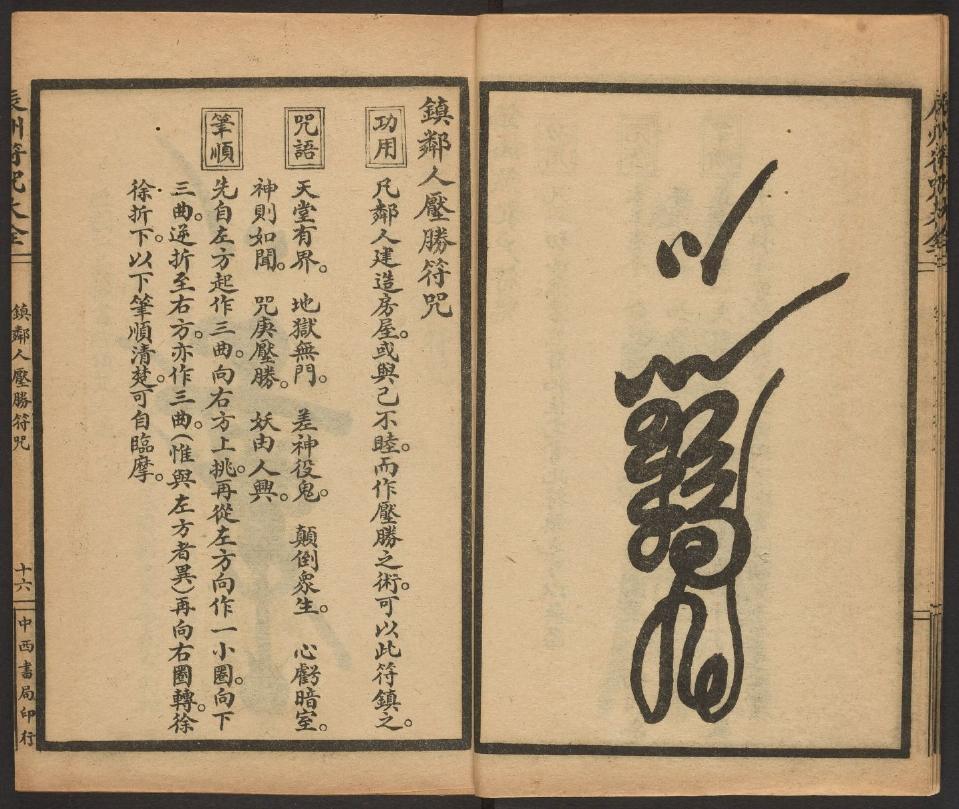 鎮鄰人壓勝符咒
功用
凡鄰人建造房屋。或與己不睦。而作壓勝之術。可以此符鎮之。
咒語
天堂有界。 地獄無門。 差神役鬼。 顛倒衆生。 心虧暗室。
神則如聞。 咒庚壓勝。 妖由人興。
筆順
先自左方起作三曲。向右方上挑。再從左方向作一小圈。向下
三曲。逆折至右方。亦作三曲。(惟與左方者異)再向右圈轉。徐
徐折下。以下筆順清楚。可自臨摩。
辰州符咒大全
鎮鄰人壓勝符咒
十六
中西書局印行